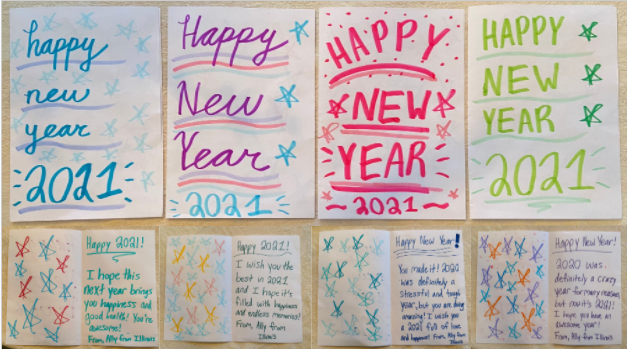 happy
new
year
2021
Happy
New
Year
2021
HAPPY
NEW
YEAR
~2021~
HAPPY
NEW
YEAR
2021
Happy 2021!
I hope this
next year brings
you happiness and
good health! You're
awesome!
From, Ally from Illinois
Happy 2021!
I wish you the
best in 2021
and I hope it's
filled with happiness
and endless memories!
From, Ally from
Illinois
Happy New Year!
You made it! 2020
was definitely a
stressful and tough
year, but you are doing
amazing! I wish you
a 2021 full of love
and happiness! From, Ally from
Illinois
Happy New Year!
2020 was
definitely a crazy
year for many reasons,
but now it's 2021!
I hope you have an
awesome year!
From, Ally from Illinois